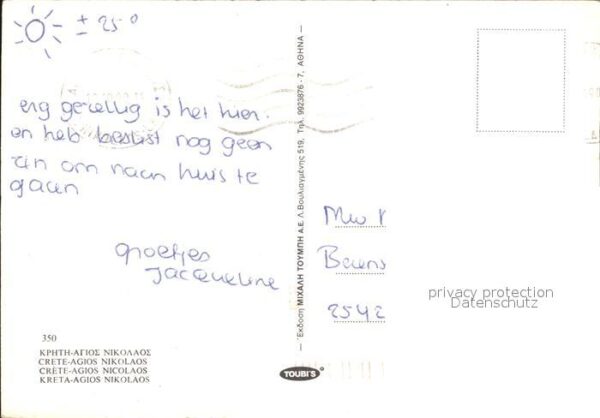 ± 25°
erg gezellig is het hier.
en heb beslist nog geen
zin om naar huis te
gaan
groetjes
Jacqueline
350
ΚΡΗΤΗ-ΑΓΙΟΣ ΝΙΚΟΛΑΟΣ
CRETE-AGIOS NIKOLAOS
CRÈTE-AGIOS NICOLAOS
KRETA-AGIOS NIKOLAOS
Έκδοση ΜΙΧΑΛΗ ΤΟΥΜΠΗ Α.Ε. Λ. Βουλιαγμένης 519, Τηλ. 9923876 - 7, ΑΘΗΝΑ
TOUBI'S
2542
privacy protection
Datenschutz